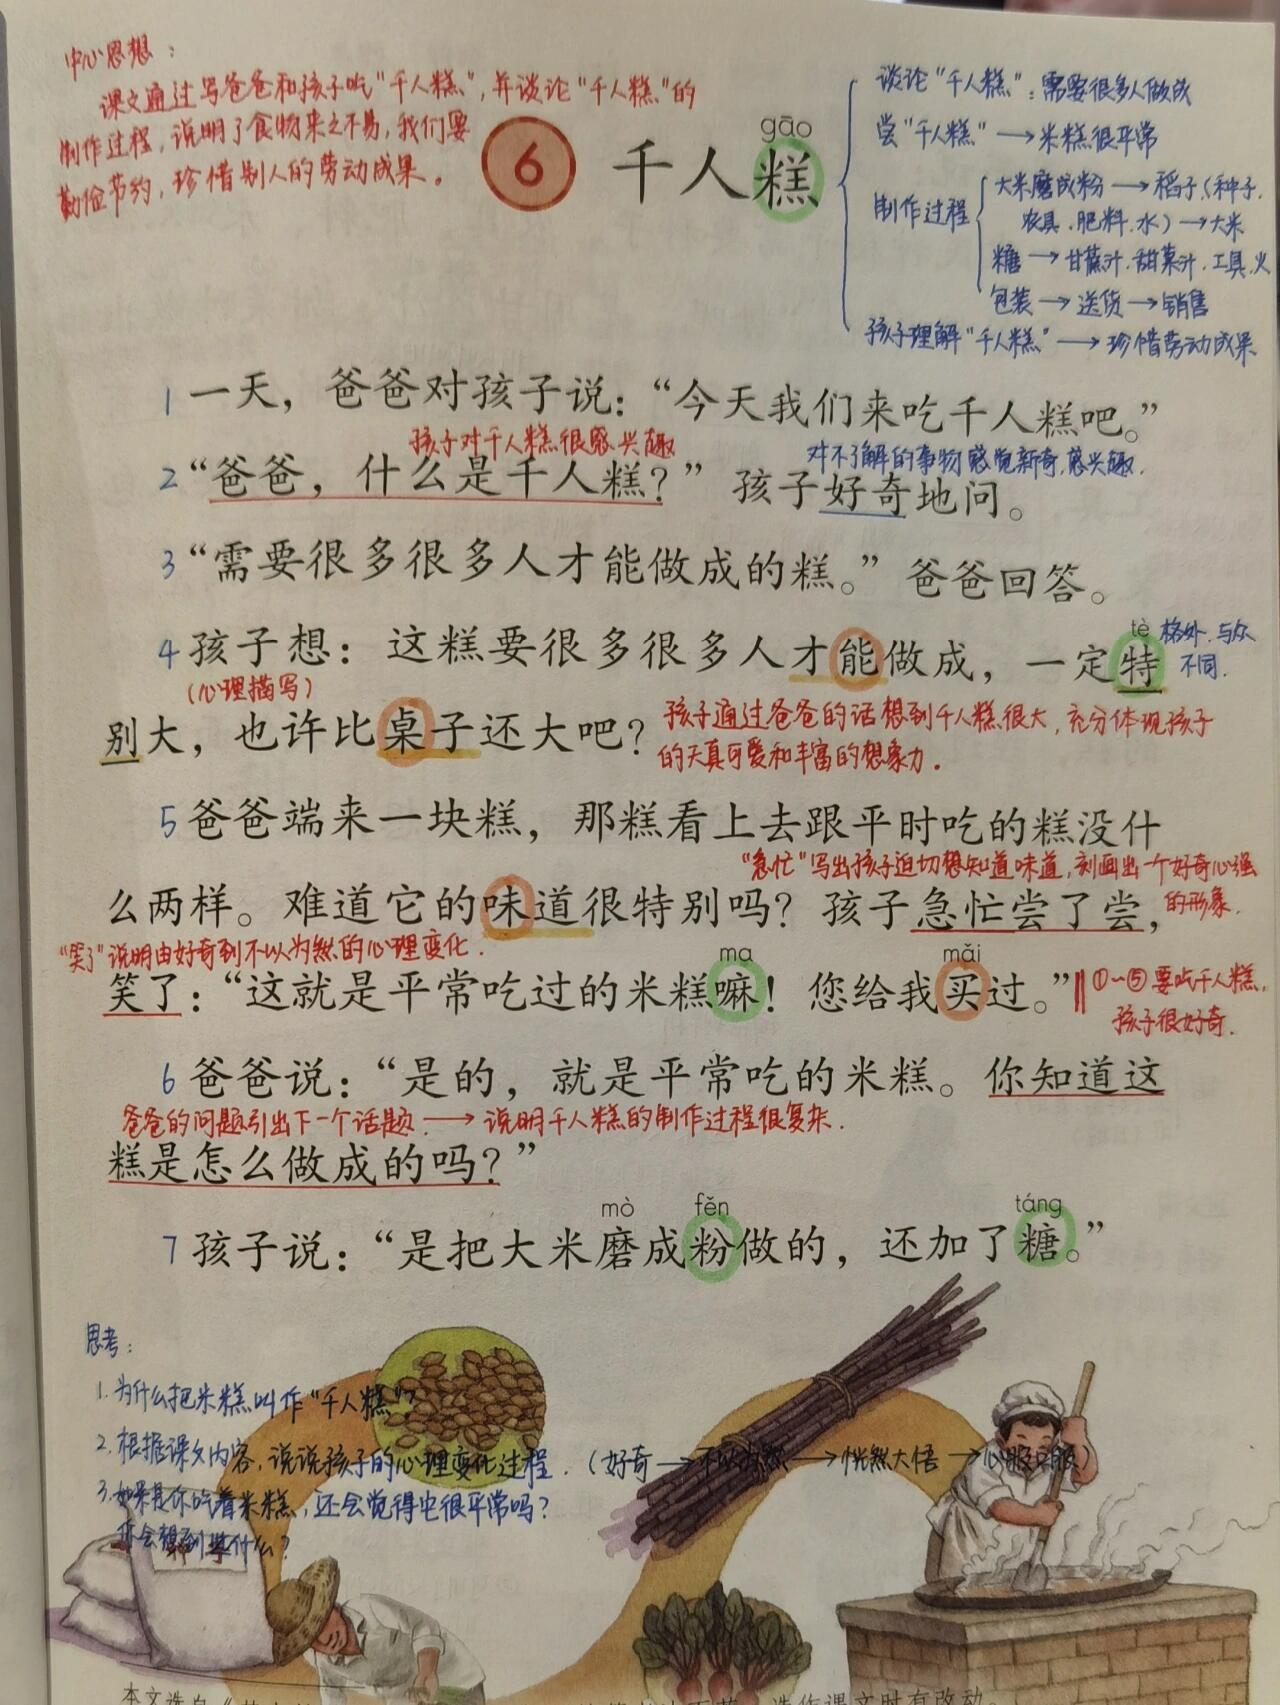 中心思想：
课文通过写爸爸和孩子吃“千人糕”，并谈论“千人糕”的
制作过程，说明了食物来之不易，我们要
勤俭节约，珍惜别人的劳动成果。
6 千人糕
gāo
谈论“千人糕”：需要很多人做成
尝“千人糕”→米糕很平常
制作过程
大米磨成粉→稻子（种子.
农具.肥料.水）→大米
糖→甘蔗汁.甜菜汁.工具.火
包装→送货→销售
孩子理解“千人糕”→珍惜劳动成果
1 一天，爸爸对孩子说：“今天我们来吃千人糕吧。”
孩子对千人糕很感兴趣
对不了解的事物感觉新奇，感兴趣.
2 “爸爸，什么是千人糕？”孩子好奇地问。
3 “需要很多很多人才能做成的糕。”爸爸回答。
tè
格外.与众
不同.
4 孩子想：这糕要很多很多人才能做成，一定特
（心理描写）
别大，也许比桌子还大吧？
孩子通过爸爸的话想到千人糕很大，充分体现孩子
的天真可爱和丰富的想象力。
5 爸爸端来一块糕，那糕看上去跟平时吃的糕没什
“急忙”写出孩子迫切想知道味道，刻画出一个好奇心强
的形象.
么两样。难道它的味道很特别吗？孩子急忙尝了尝，
“笑了”说明由好奇到不以为然的心理变化.
ma mǎi
笑了：“这就是平常吃过的米糕嘛！您给我买过。”
①~⑤要吃千人糕，
孩子很好奇.
6 爸爸说：“是的，就是平常吃的米糕。你知道这
爸爸的问题引出下一个话题.→说明千人糕的制作过程很复杂.
糕是怎么做成的吗？”
mò fěn táng
7 孩子说：“是把大米磨成粉做的，还加了糖。”
思考：
1.为什么把米糕叫作“千人糕”？
2.根据课文内容，说说孩子的心理变化过程.（好奇→不以为然→恍然大悟→心服口服）
3.如果是你吃着米糕，还会觉得它很平常吗？
你会想到些什么？
本文选自 选作课文时有改动。